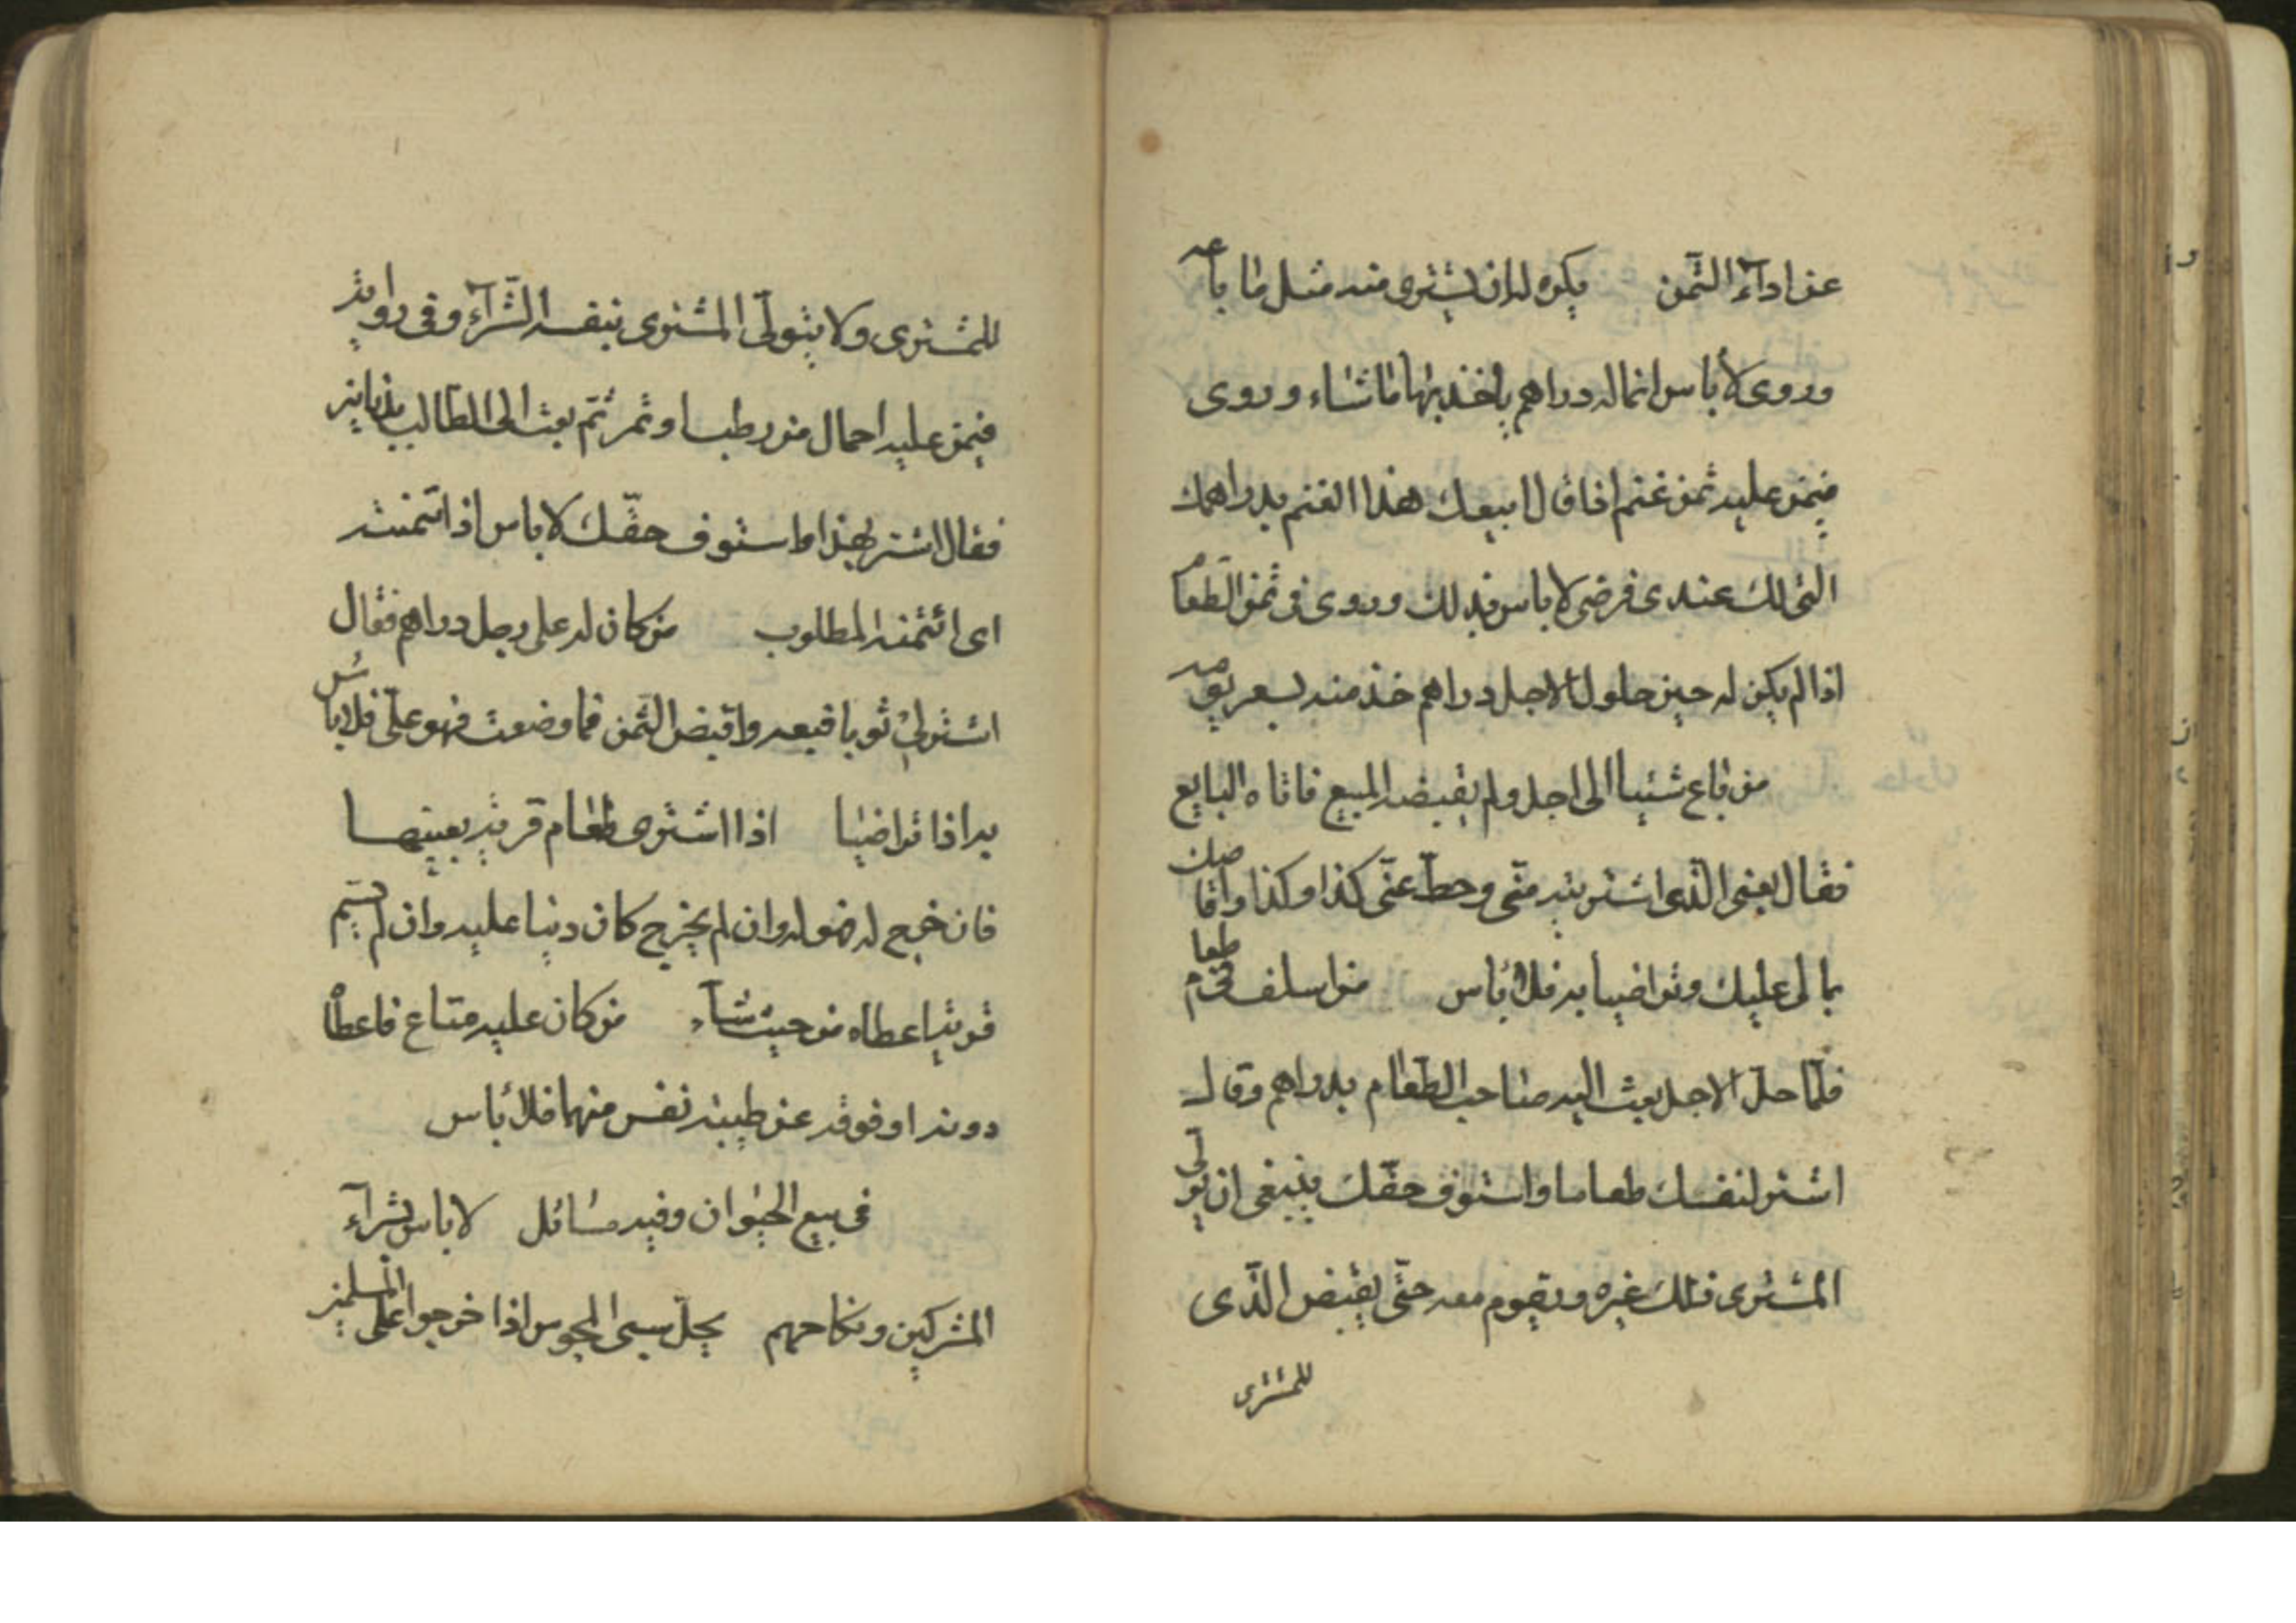 عن اداء الثمن يكره له ان يشترى منه مثل ما باعه
وروى لا باس انما له دراهم ياخذ بها ما شاء وروى
فيمن عليه ثمن غنم اذا قال ابيعك هذا الغنم بدراهمك
التى لك عندى فرضى لا باس بذلك وروى فى ثمن الطعام
اذا لم يكن له حين حلول الاجل دراهم خذ منه بسعر يومه
من باع شيئا الى اجل ولم يقبضه المبيع فاتاه البايع
فقال بعنى الذى اشتريته منى وحط عنى كذا وكذا واقاصك
بمالى عليك وتراضيا به فلا باس من اسلف فى طعام
فلما حل الاجل بعث اليه صاحب الطعام بدراهم وقال
اشتر لنفسك طعاما واستوف حقك ينبغى ان يولى
المشترى ذلك غيره ويقوم معه حتى يقبض الذى
للمشترى
للمشترى ولا يتولى المشترى بنفسه الشراء وفى رواية
فيمن عليه احمال من رطب او تمر ثم بعث الى الطالب بدنانير
فقال اشتر بهذا واستوف حقك لا باس اذا ائتمنته
اى ائتمنه المطلوب من كان له على رجل دراهم فقال
اشتر لى ثوبا فبعه واقبض الثمن فما وضعت فهو على فلا باس
به اذا تراضيا اذا اشترى طعام قرية بعينها
فان خرج له فهو له وان لم يخرج كان دينا عليه وان لم يسم
قرية اعطاه من حيث شاء من كان عليه متاع فاعطا
دونه او فوقه عن طيبة نفس منهما فلا باس
فى بيع الحيوان وفيه مسائل لا باس بشراء
المشركين ونكاحهم يحل سبى المجوس اذا خرجوا على المسلمين